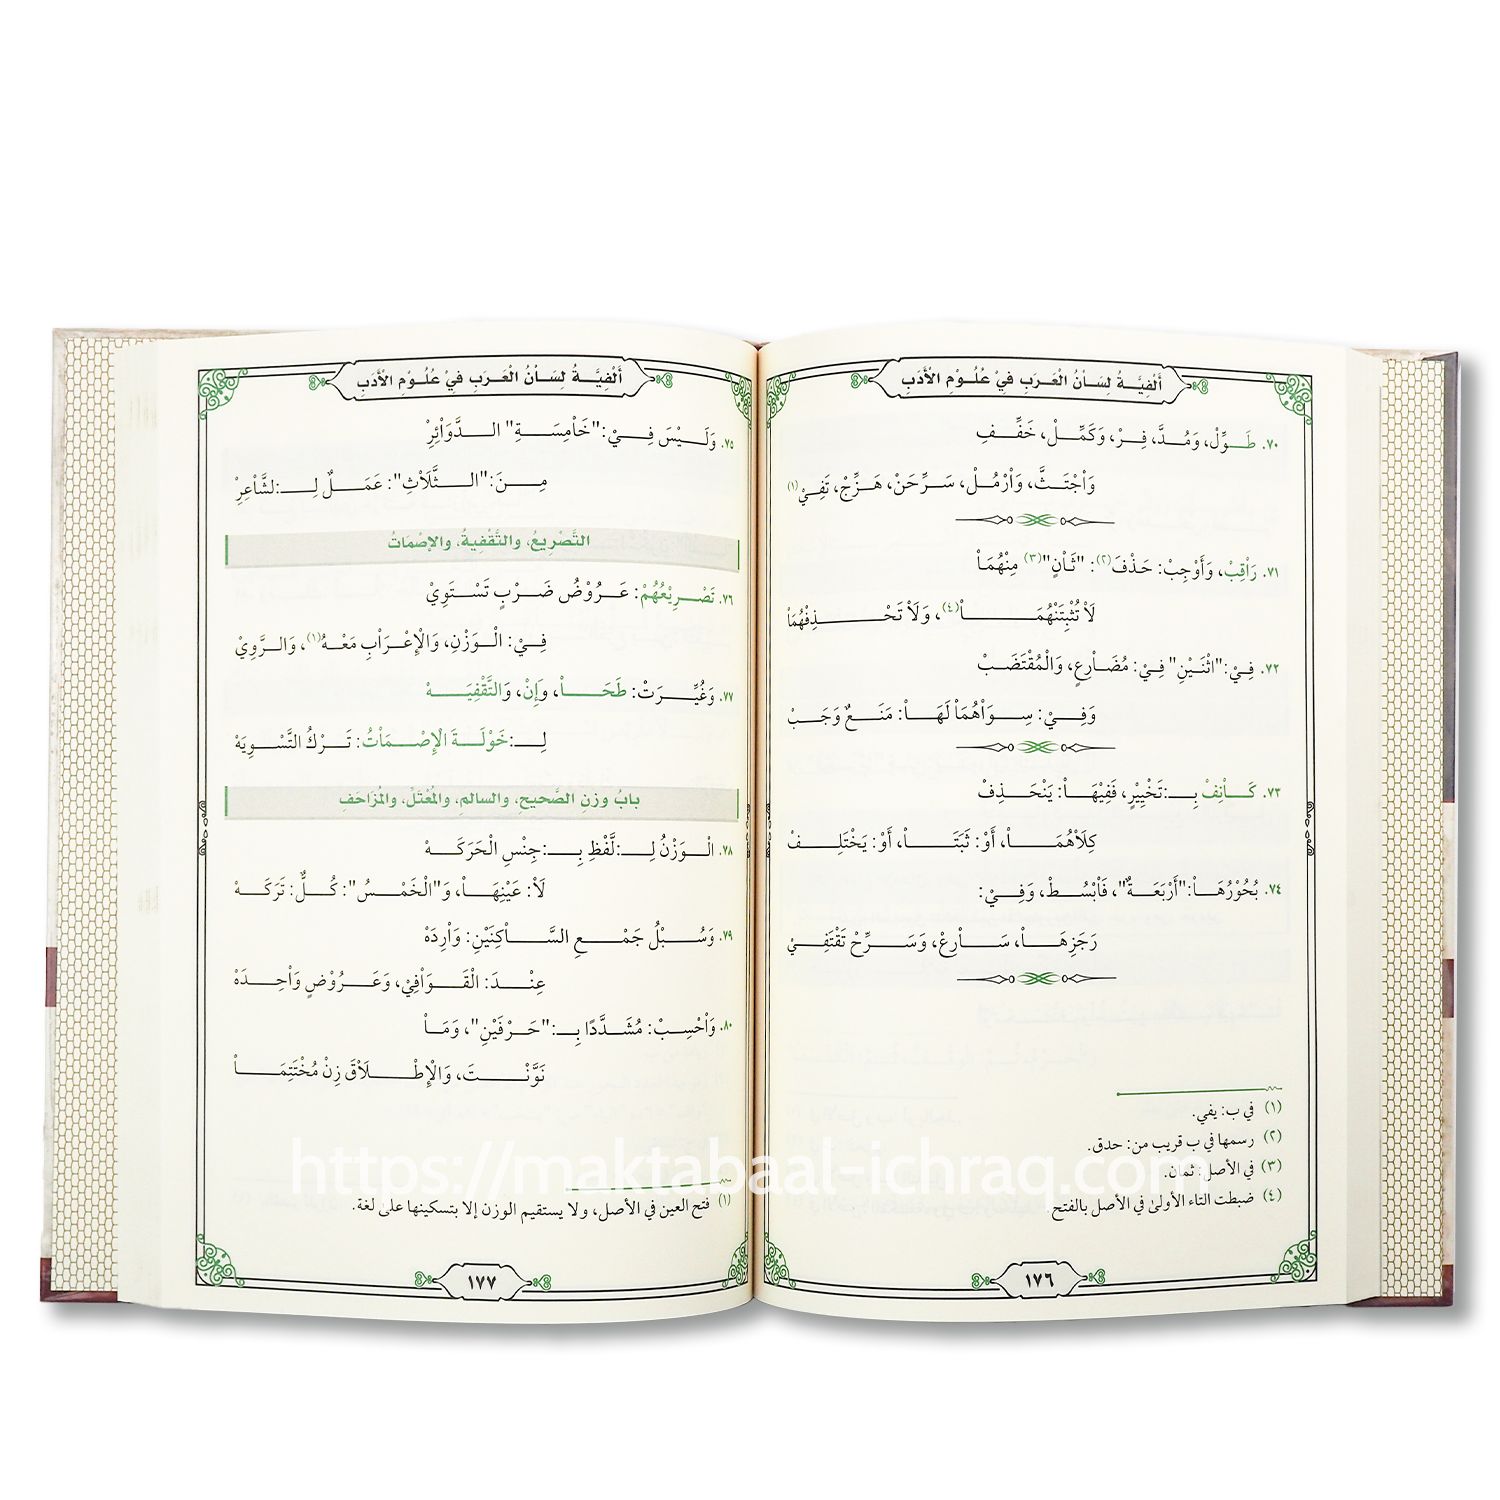 أَلْفِيَّةُ لِسَاْنُ الْعَرَبِ فِيْ عُلُوْمِ الْأَدَبِ
٧٠. طَوِّلْ، وَمُدَّ، فِرْ، وَكَمِّلْ، خَفِّفِ
وَاْجْتَثَّ، وَاْرْمُلْ، سَرِّحَنْ، هَزِّجْ، تَفِيْ(١)
٧١. رَاْقِبْ، وَأَوْجِبْ: حَذْفَ(٢): "ثَاْنٍ"(٣) مِنْهُمَاْ
لَاْ تُثْبِتَنْهُمَاْ(٤)، وَلَاْ تَحْذِفْهُمَاْ
٧٢. فِيْ: "اثْنَيْنِ" فِيْ: مُضَاْرِعٍ، وَالْمُقْتَضَبْ
وَفِيْ: سِوَاْهُمَاْ لَهَاْ: مَنَعٌ وَجَبْ
٧٣. كَاْنِفْ بِـ:تَخْيِيْرٍ، فَفِيْهَاْ: يَنْحَذِفْ
كِلَاْهُمَاْ، أَوْ: ثَبَتَاْ، أَوْ: يَخْتَلِفْ
٧٤. بُحُوْرُهَاْ: "أَرْبَعَةٌ"، فَاْبْسُطْ، وَفِيْ:
رَجَزِهَاْ، سَاْرِعْ، وَسَرِّحْ تَقْتَفِيْ
(١) في ب: يفي.
(٢) رسمها في ب قريب من: حدق.
(٣) في الأصل: ثمان.
(٤) ضبطت التاء الأولى في الأصل بالفتح.
١٧٦
أَلْفِيَّةُ لِسَاْنُ الْعَرَبِ فِيْ عُلُوْمِ الْأَدَبِ
٧٥. وَلَيْسَ فِيْ: "خَاْمِسَةِ" الدَّوَاْئِرْ
مِنَ: "الثَّلَاْثِ": عَمَلٌ لِـ:لشَّاْعِرْ
التَّصْرِيعُ، والتَّقْفِيةُ، والإصْمَاتُ
٧٦. تَصْرِيْعُهُمْ: عَرُوْضُ ضَرْبٍ تَسْتَوِيْ
فِيْ: الْوَزْنِ، وَالْإِعْرَاْبِ مَعْهُ(١)، وَالرَّوِيْ
٧٧. وَغُيِّرَتْ: طَحَاْ، وَإِنْ، وَالتَّقْفِيَهْ
لِـ:خَوْلَةَ الْإِصْمَاْتُ: تَرْكُ التَّسْوِيَهْ
بابُ وزنِ الصَّحيحِ، والسالمِ، والمُعْتَلِّ، والمُزَاحَفِ
٧٨. الْوَزْنُ لِـ:لَّفْظِ بِـ:جِنْسِ الْحَرَكَهْ
لَاْ: عَيْنِهَاْ، وَ"الْخَمْسُ": كُلٌّ: تَرَكَهْ
٧٩. وَسُبْلُ جَمْعِ السَّاْكِنَيْنِ: وَاْرِدَهْ
عِنْدَ: الْقَوَاْفِيْ، وَعَرُوْضٍ وَاْحِدَهْ
٨٠. وَاْحْسِبْ: مُشَدَّدًا بِـ: "حَرْفَيْنِ"، وَمَاْ
نَوَّنْتَ، وَالْإِطْلَاْقَ زِنْ مُخْتَتِمَاْ
(١) فتح العين في الأصل، ولا يستقيم الوزن إلا بتسكينها على لغة.
١٧٧
https://maktabaal-ichraq.com